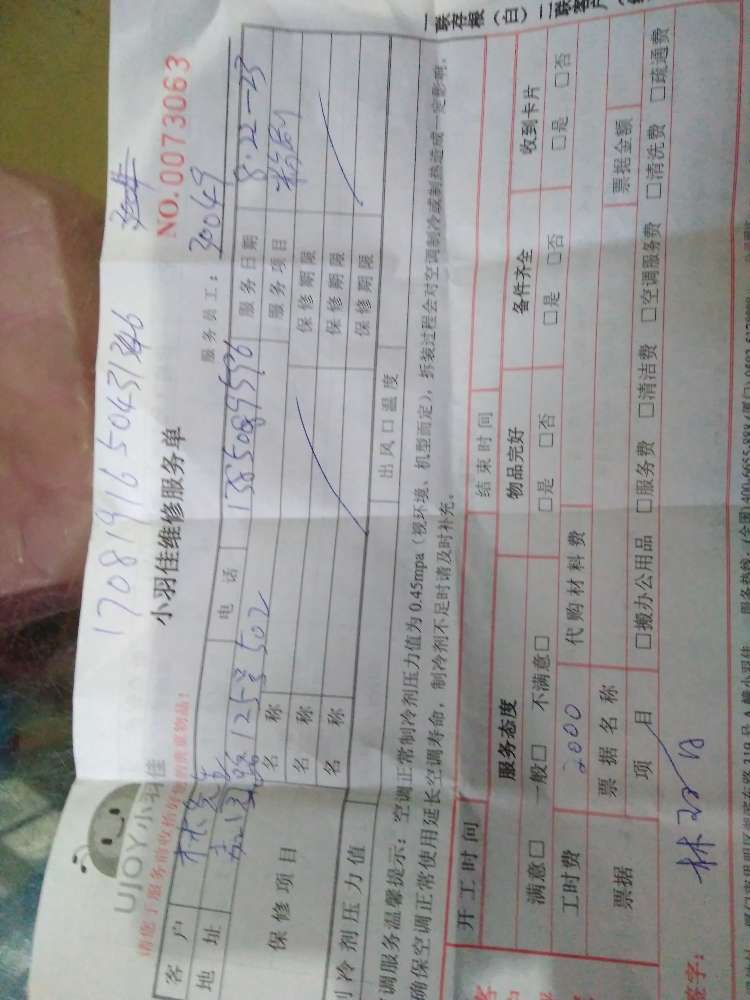 17081916504313846
UJOY小羽佳
小羽佳维修服务单
NO.0073063
请您于服务前收拾好您的贵重物品!
服务员工:
客户 林先生 电话 13850899596 服务日期 8.22-23
地址 125号502 服务项目
保修项目 名称 保修期限
名称 保修期限
名称 保修期限
制冷剂压力值 出风口温度
调服务温馨提示:空调正常制冷剂压力值为0.45mpa(视环境、机型而定),拆装过程会对空调制冷或制热造成一定影响,
确保空调正常使用延长空调寿命,制冷剂不足时请及时补充。
一联存根(白)二联客户
开工时间 结束时间
服务态度 物品完好 备件齐全 收到卡片
满意□ 一般□ 不满意□ □是 □否 □是 □否 □是 □否
工时费 2000 代购材料费
票据 票据名称 票据金额
项目 □搬办公用品 □服务费 □清洁费 □空调服务费 □清洗费 □疏通费
签字: